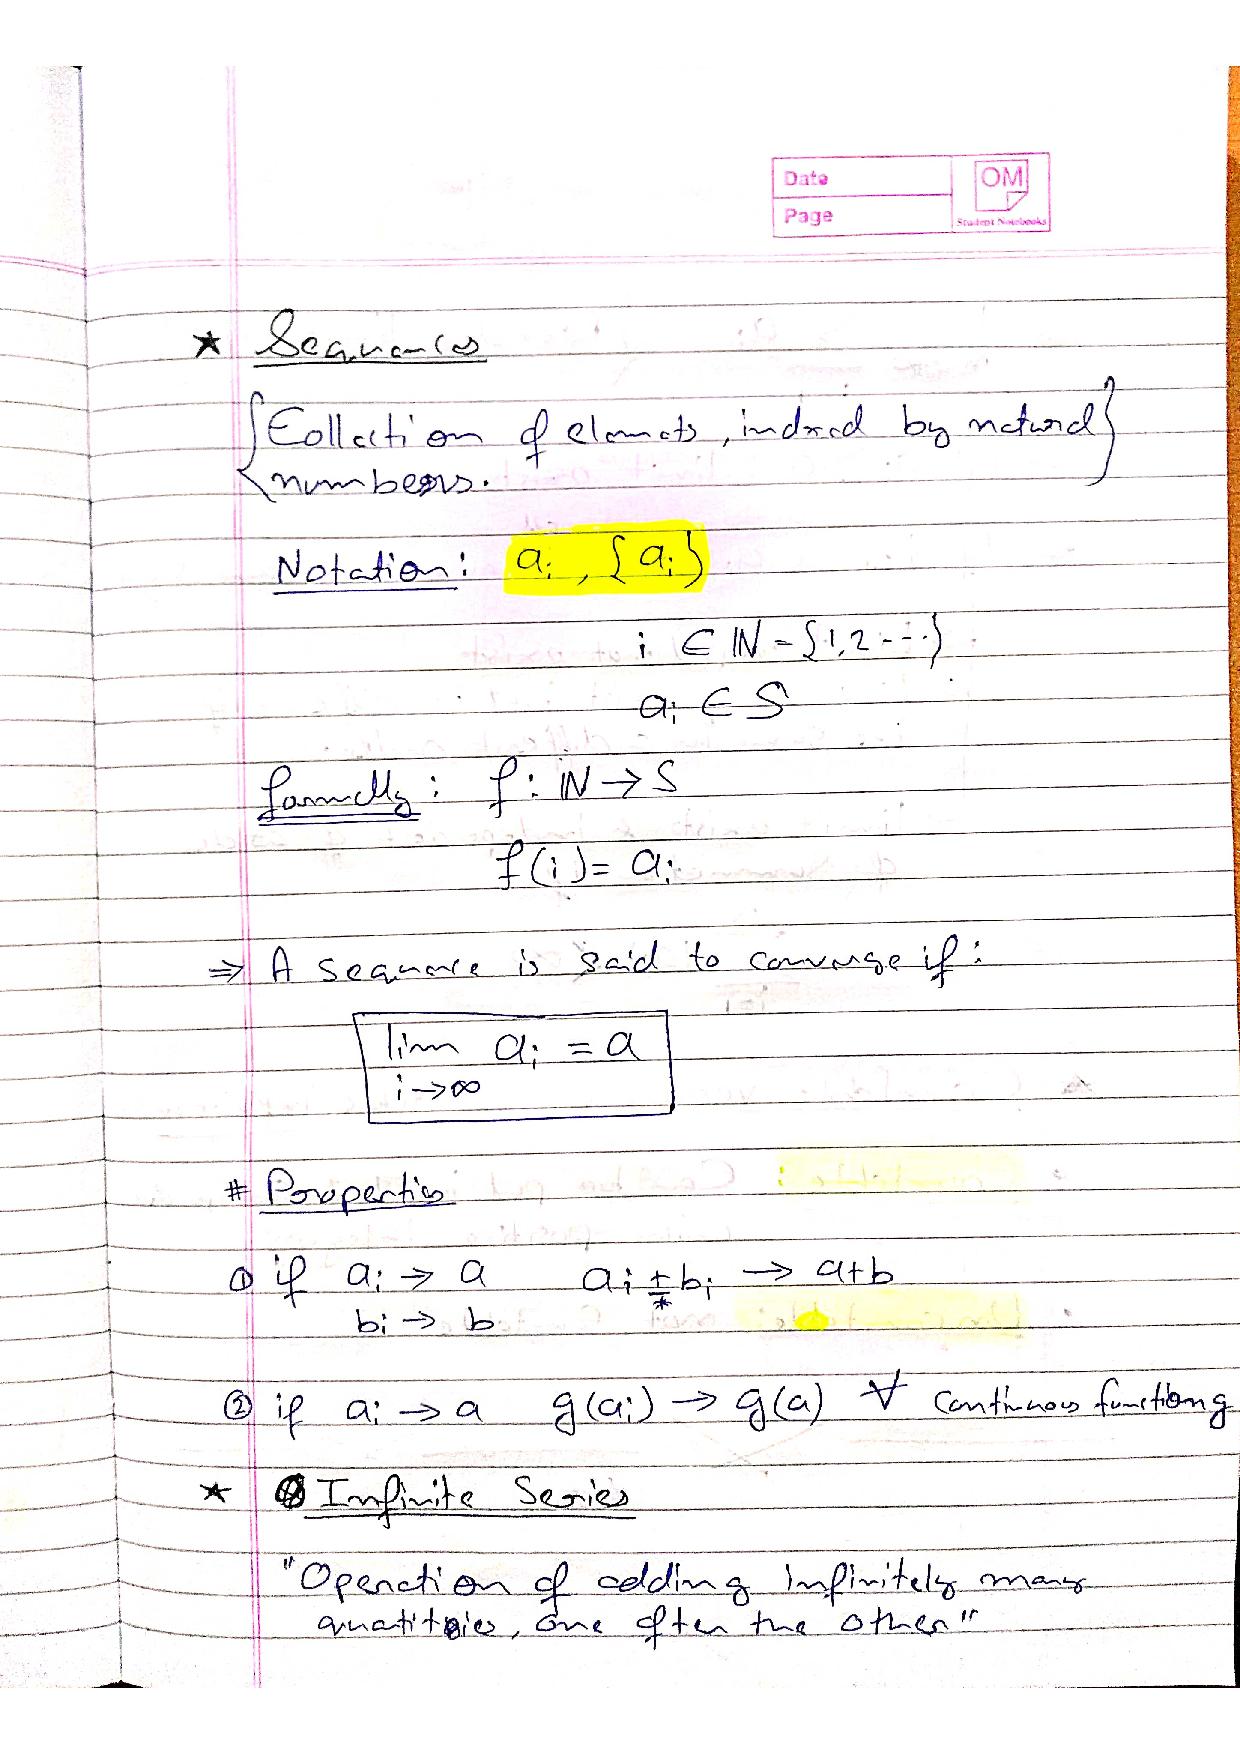 Date
Page
OM
Student Notebooks
★ Sequences
{Collection of elements, indexed by natural
numbers.}
Notation: aᵢ, {aᵢ}
i ∈ ℕ - {1,2 ---}
aᵢ ∈ S
formally: f: ℕ → S
f(i) = aᵢ
⇒ A sequence is said to converge if:
lim aᵢ = a
i→∞
# Properties
① if aᵢ → a aᵢ ± bᵢ → a+b
*
bᵢ → b
② if aᵢ → a g(aᵢ) → g(a) ∀ continuous function g
★ Infinite Series
"Operation of adding infinitely many
quantities, one after the other"